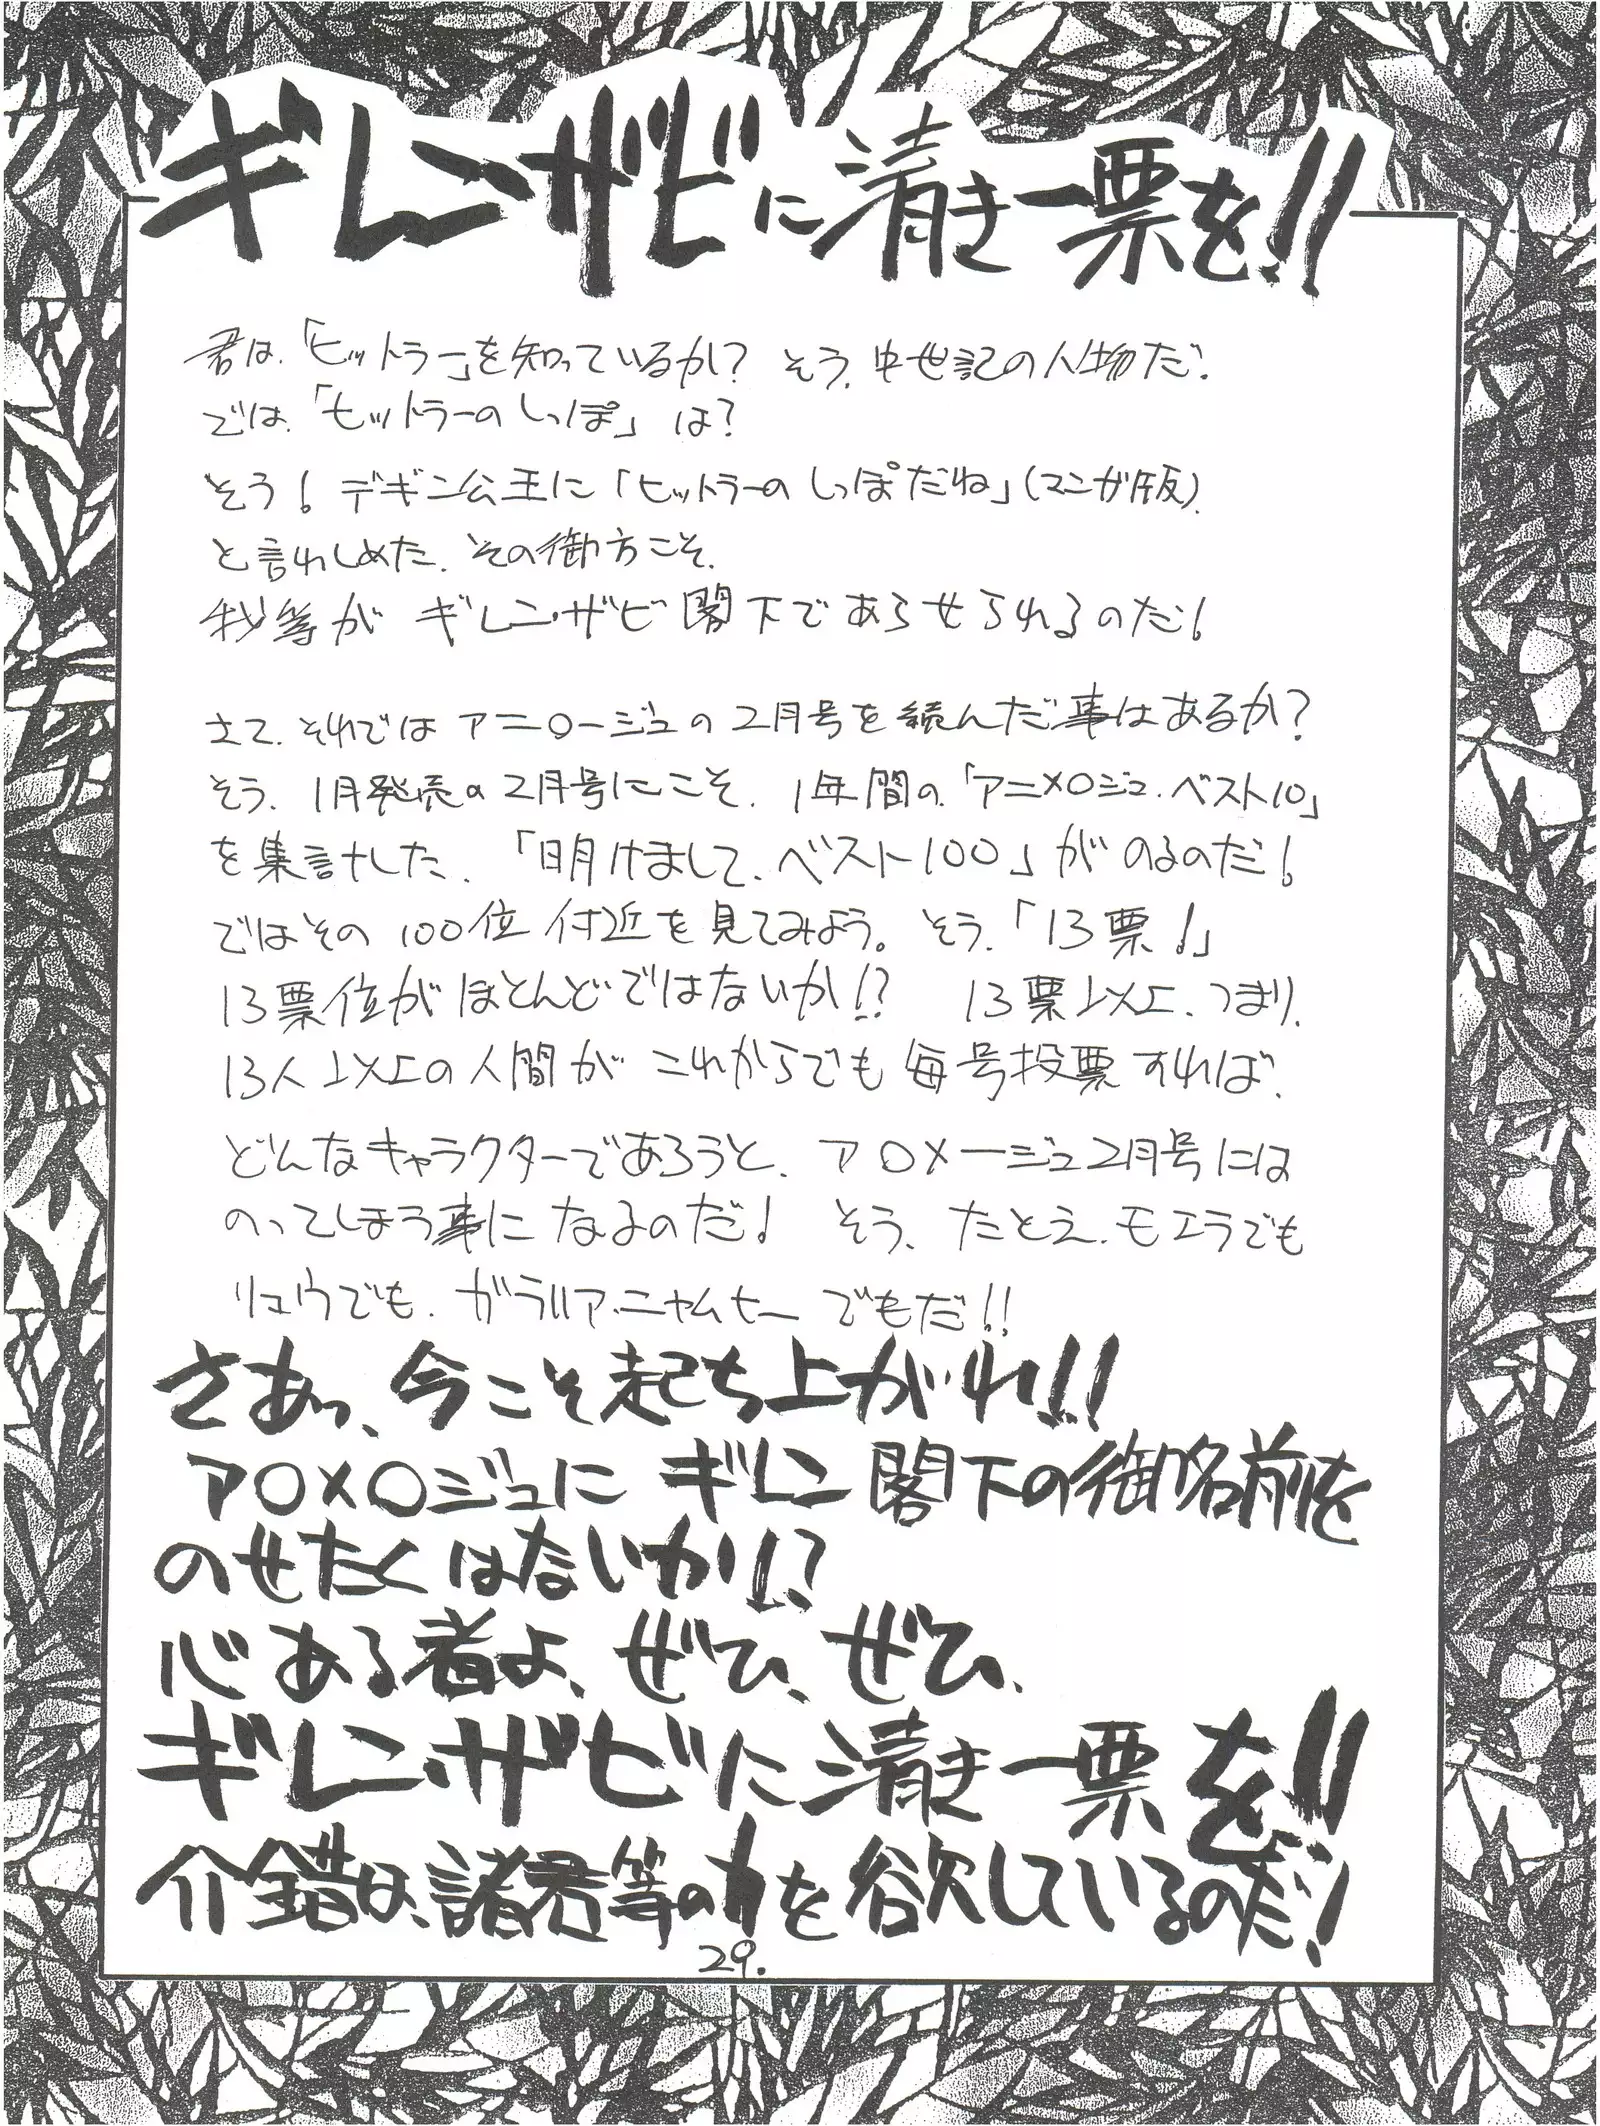 ギレン・ザビに清き一票を!!
君は、「ヒットラー」を知っているか? そう、中世記の人物だ!
では、「ヒットラーのしっぽ」は?
そう! デギン公王に「ヒットラーのしっぽだね」(マンガ版)
と言わしめた、その御方こそ、
我等が ギレン・ザビ閣下であらせられるのだ!
さて、それでは アニ○ージュの2月号を読んだ事はあるか?
そう、1月発売の2月号にこそ、1年間の、「アニメ○ジュ・ベスト10」
を集計した、「明けまして、ベスト100」がのるのだ!
ではその100位付近を見てみよう。そう、「13票!」
13票位がほとんどではないか!? 13票以上、つまり、
13人以上の人間がこれからでも毎号投票すれば、
どんなキャラクターであろうと、ア○メージュ2月号には
のってしまう事になるのだ! そう、たとえ、モエラでも
リュウでも、ガラリア・ニャムヒーでもだ!!
さあっ、今こそ起ち上がれ!!
ア○メ○ジュにギレン閣下の御名前を
のせたくはないか!?
心ある者よ、ぜひ、ぜひ、
ギレン・ザビに清き一票を!!
介錯は、諸君等の力を欲しているのだ!
29.